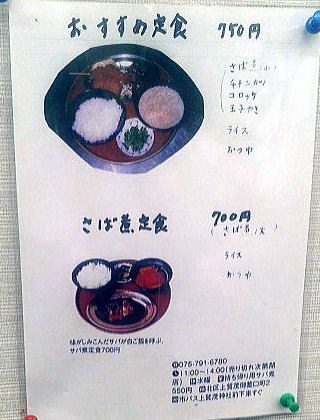 おすすめ定食 750円
さば煮(小)
チキンカツ
コロッケ
玉子やき
ライス
おつゆ
さば煮定食 700円
(さば煮(大))
ライス
おつゆ
味がしみこんだサバが白ご飯を呼ぶ、
サバ煮定食700円
☎075-791-6780
11:00〜14:00(売り切れ次第閉
店) 休水曜 持ち帰り用サバ煮
550円 北区上賀茂御薗口町2
市バス上賀茂神社前下車すぐ